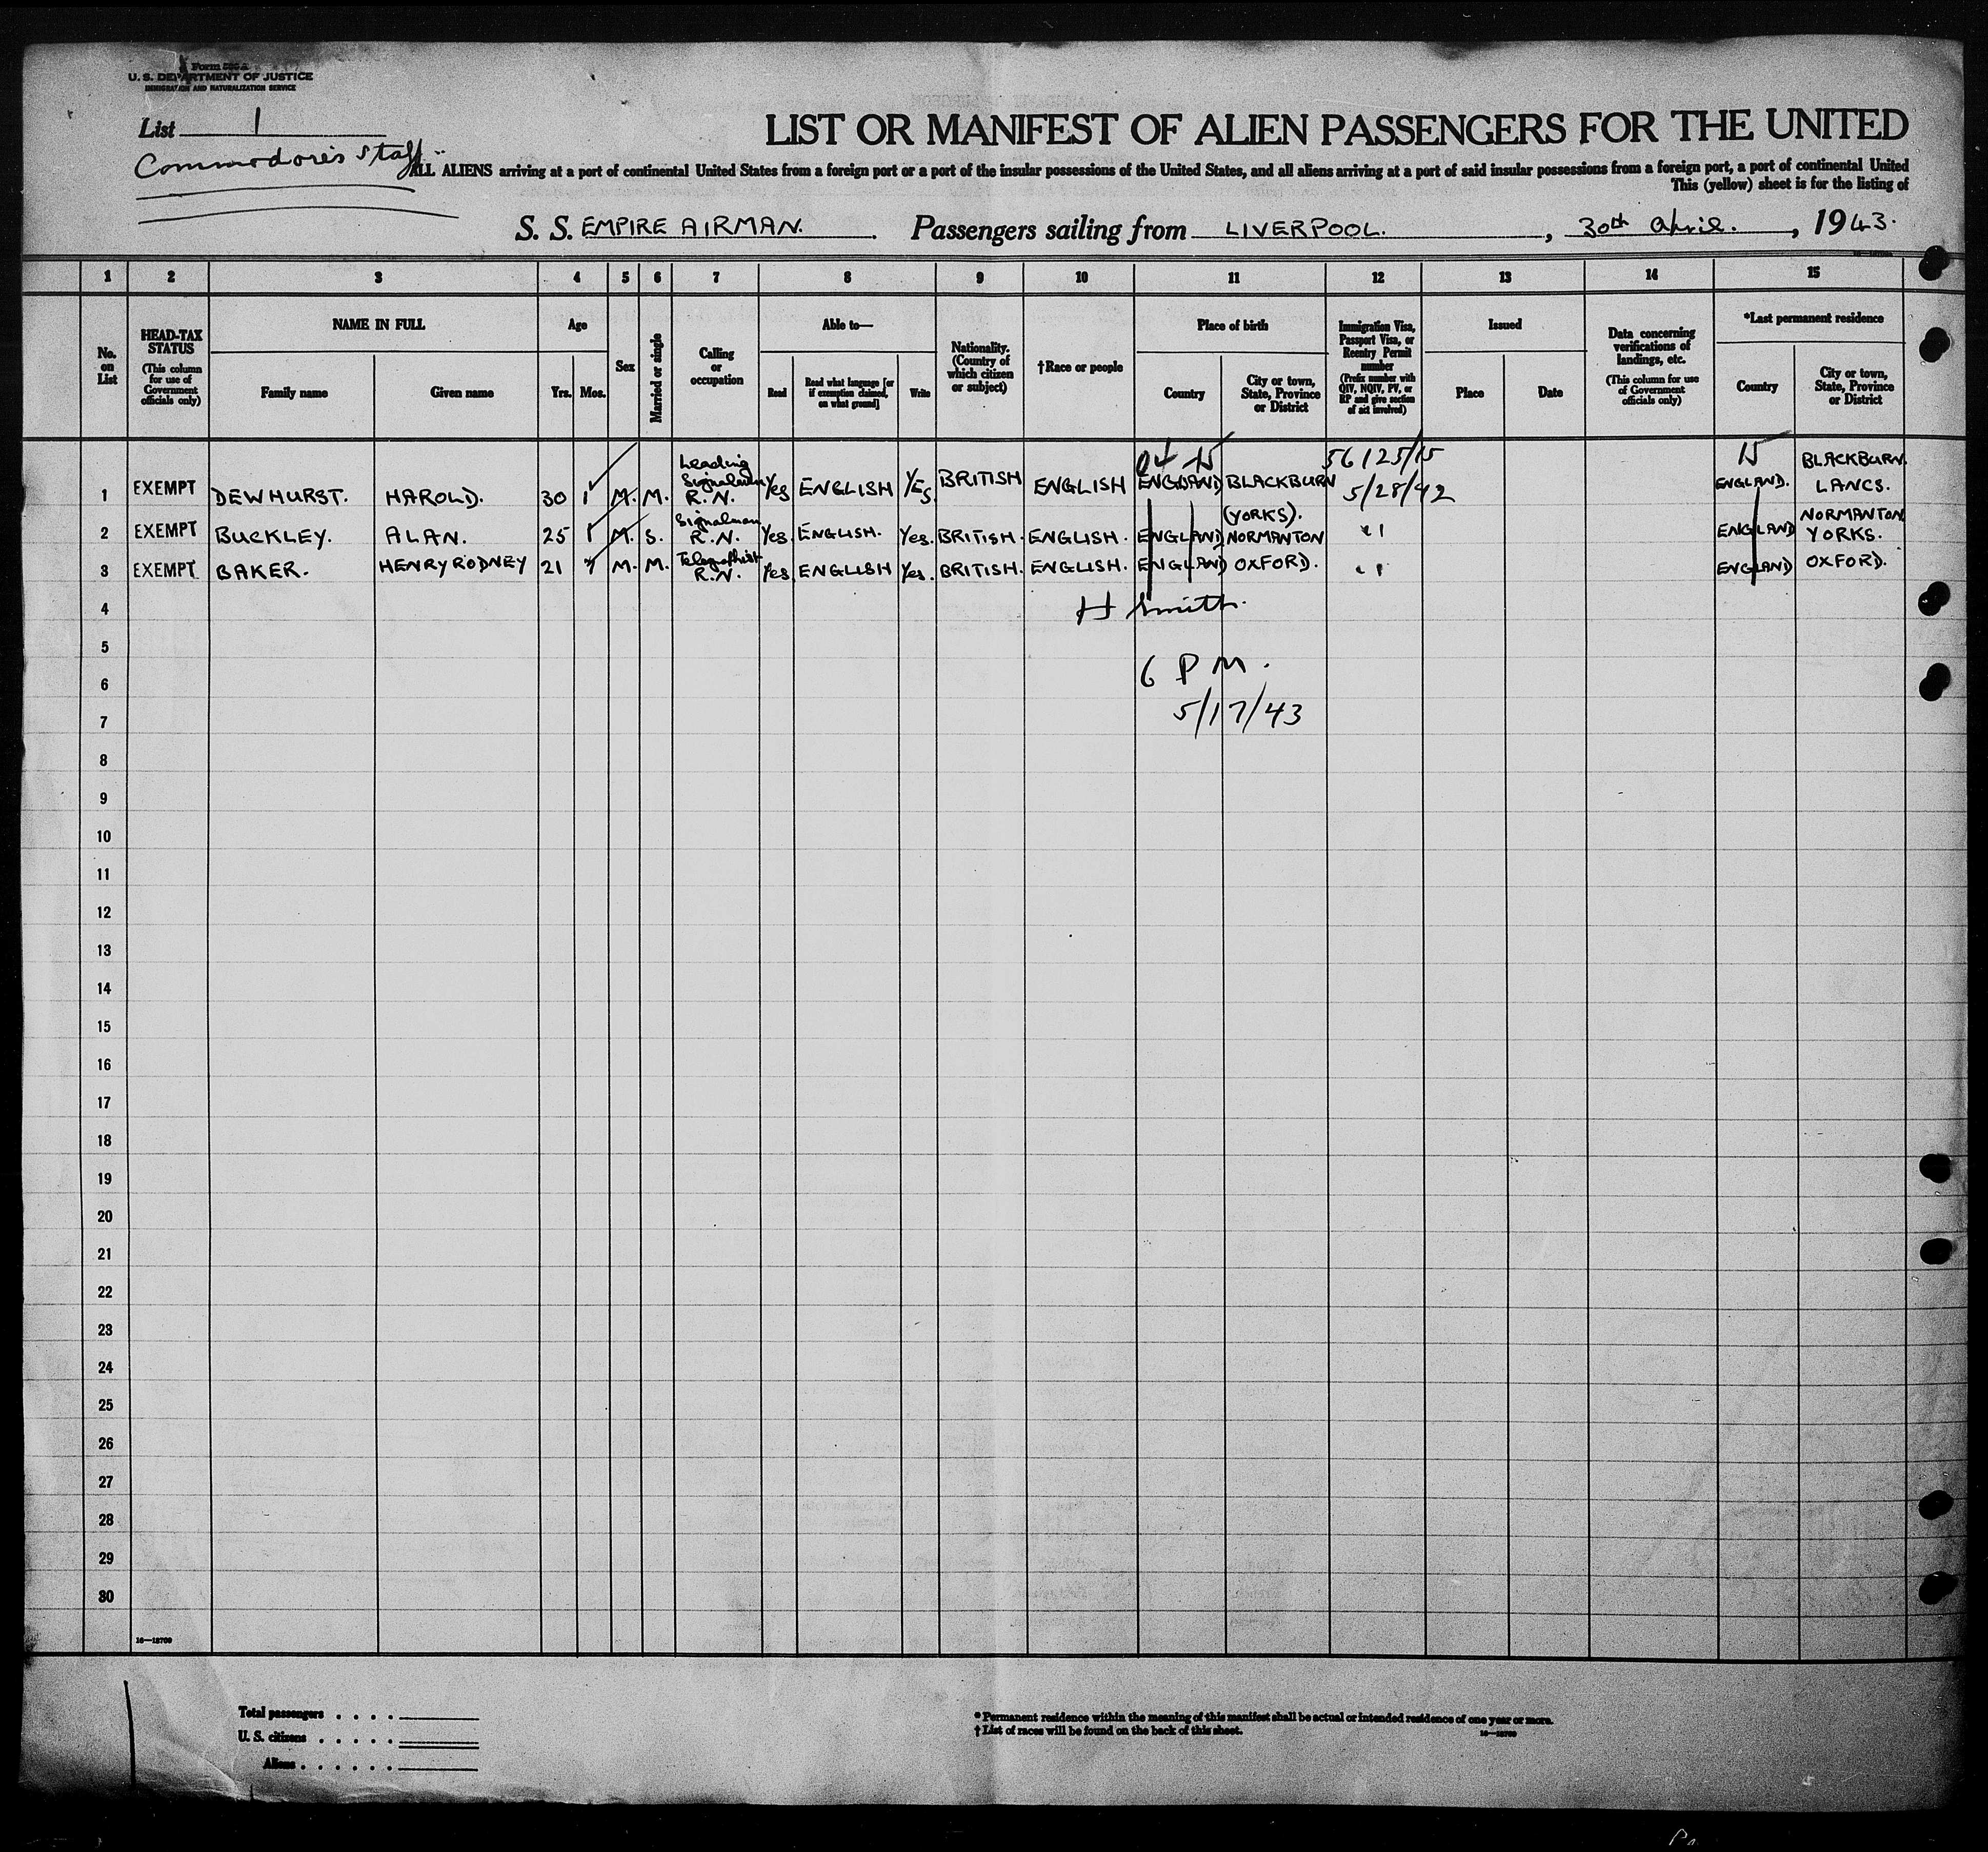 Form
U. S. DEPARTMENT OF JUSTICE
IMMIGRATION AND NATURALIZATION SERVICE
List 1
Commodore's Staff
LIST OR MANIFEST OF ALIEN PASSENGERS FOR THE UNITED
ALL ALIENS arriving at a port of continental United States from a foreign port or a port of the insular possessions of the United States, and all aliens arriving at a port of said insular possessions from a foreign port, a port of continental United
This (yellow) sheet is for the listing of
S. S. EMPIRE AIRMAN. Passengers sailing from LIVERPOOL. , 30th April. , 1943.
1 2 3 4 5 6 7 8 9 10 11 12 13 14 15
No. on List
HEAD-TAX STATUS (This column for use of Government officials only)
NAME IN FULL
Family name Given name
Age
Yrs. Mos.
Sex
Married or single
Calling or occupation
Able to—
Read Read what language [or if exemption claimed, on what ground] Write
Nationality. (Country of which citizen or subject)
†Race or people
Place of birth
Country City or town, State, Province or District
Immigration Visa, Passport Visa, or Reentry Permit number (Prefix number with QIV, NQIV, PV, or RP and give section of act involved)
Issued
Place Date
Data concerning verifications of landings, etc. (This column for use of Government officials only)
*Last permanent residence
Country City or town, State, Province or District
04 15 56125/15 15
1 EXEMPT DEWHURST. HAROLD. 30 1 M. M. Leading Signalman R.N. Yes ENGLISH Yes BRITISH ENGLISH ENGLAND BLACKBURN 5/28/42 ENGLAND. BLACKBURN. LANCS.
2 EXEMPT BUCKLEY. ALAN. 25 1 M. S. Signalman R.N. Yes. ENGLISH. Yes. BRITISH. ENGLISH. ENGLAND (YORKS). NORMANTON " ENGLAND NORMANTON YORKS.
3 EXEMPT BAKER. HENRY RODNEY 21 7 M. M. Telegraphist R.N. Yes. ENGLISH Yes. BRITISH. ENGLISH. ENGLAND OXFORD. " ENGLAND OXFORD.
4 H Smith.
5
6 6 PM.
7 5/17/43
8
9
10
11
12
13
14
15
16
17
18
19
20
21
22
23
24
25
26
27
28
29
30
16—18709
Total passengers . . . .
U. S. citizens . . . . .
Aliens . . . . . .
* Permanent residence within the meaning of this manifest shall be actual or intended residence of one year or more.
† List of races will be found on the back of this sheet.
16—18709